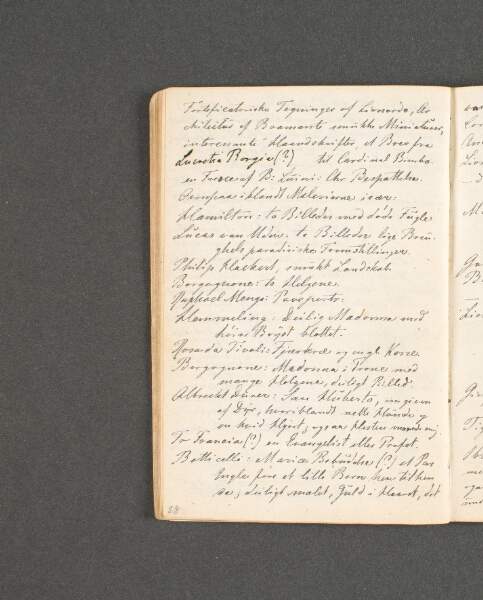 Fortificatoriske Tegninger af Lionardo, Ar
chitectur af Bramante smukke Miniaturer,
interessante Haandskrifter, et Brev fra
Lucretia Borgia (?) til Cardinal Bembo.
en Fresco af B: Luini: Chr Bespottelse.
Ovenpaa iblandt Malerierne især:
Hamilton: to Billeder med døde Fugle
Lucas van Uden: to Billeder lige Breu-
ghels paradisiske Forestillinger.
Philip Hackert, smukt Landskab.
Borgognone: to Helgene.
Raphael Mengs: Pave
Hemmeling: Deilig Madonna med
høire Bryst blottet.
Rosa da Tivoli: Fjærkræ og
Borgognone: Madonna i Trone med
mange Helgene, deiligt Billed
Albrecht Dürer: San Huberto, 
af Dyr, hvoriblandt nette Hunde og
en hvid Hjort, ogsaa Hesten
To Francia (?) en Evangelist eller Profet.
Botticelli: Mariæ Bebudelse (?) et Par
Engle føre et lille Barn hen til hen
de; deiligt malet, Guld i Haaret, det
58